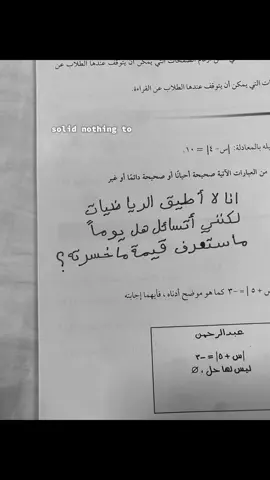 التي يمكن أن يتوقف عندها الطلاب عن
التي يمكن أن يتوقف عندها الطلاب عن القراءة.
solid nothing to
بالمعادلة: |س - ٤| = ١٠.
من العبارات الآتية صحيحة أحيانًا أو صحيحة دائمًا أو غير
انا لا أطيق الرياضيات
لكنني أتسائل هل يوماً
ما ستعرف قيمة ما خسرته؟
س + ٥| = -٣ كما هو موضح أدناه، فأيهما إجابته
عبدالرحمن
|س + ٥| = -٣
ليس لها حل، ∅